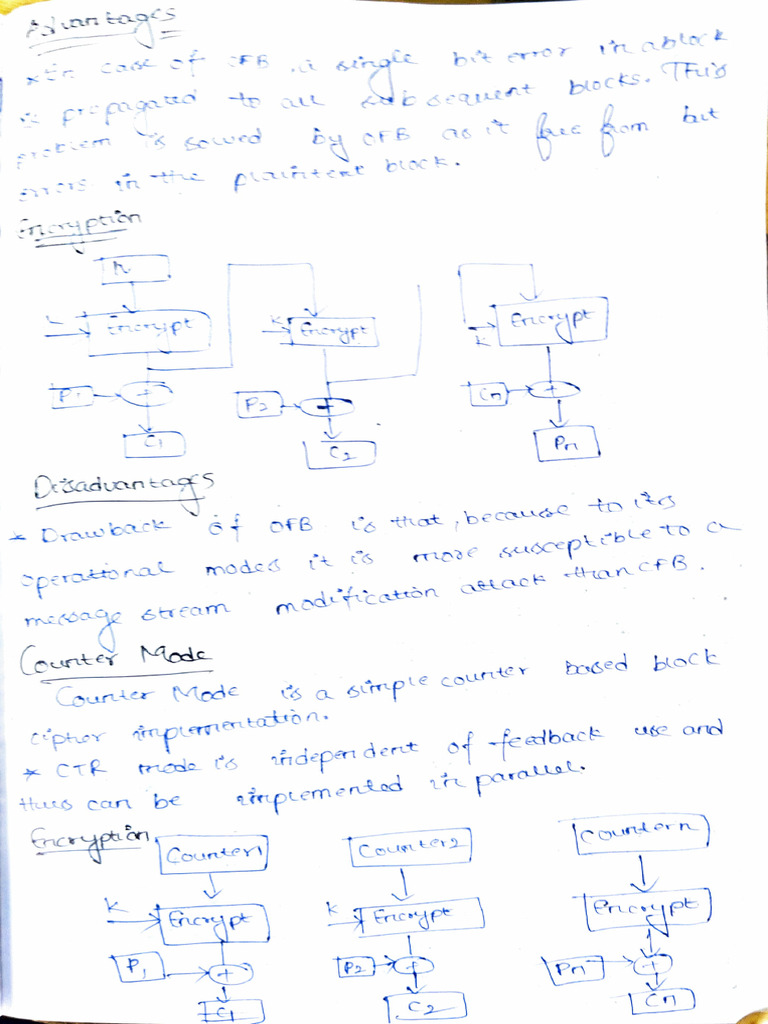 Advantages
* In case of CFB, a single bit error in a block
is propagated to all subsequent blocks. This
problem is solved by OFB as it free from bit
errors in the plaintext block.
Encryption
K Encrypt K Encrypt K Encrypt
P1 + P2 + Cn +
C1 C2 Pn
Disadvantages
* Drawback of OFB is that, because to its
operational modes it is more susceptible to a
message stream modification attack than CFB.
Counter Mode
Counter Mode is a simple counter based block
cipher implementation.
* CTR mode is independent of feedback use and
thus can be implemented in parallel.
Encryption
Counter1 Counter2 Countern
K Encrypt K Encrypt Encrypt
P1 + P2 + Pn +
C1 C2 Cn